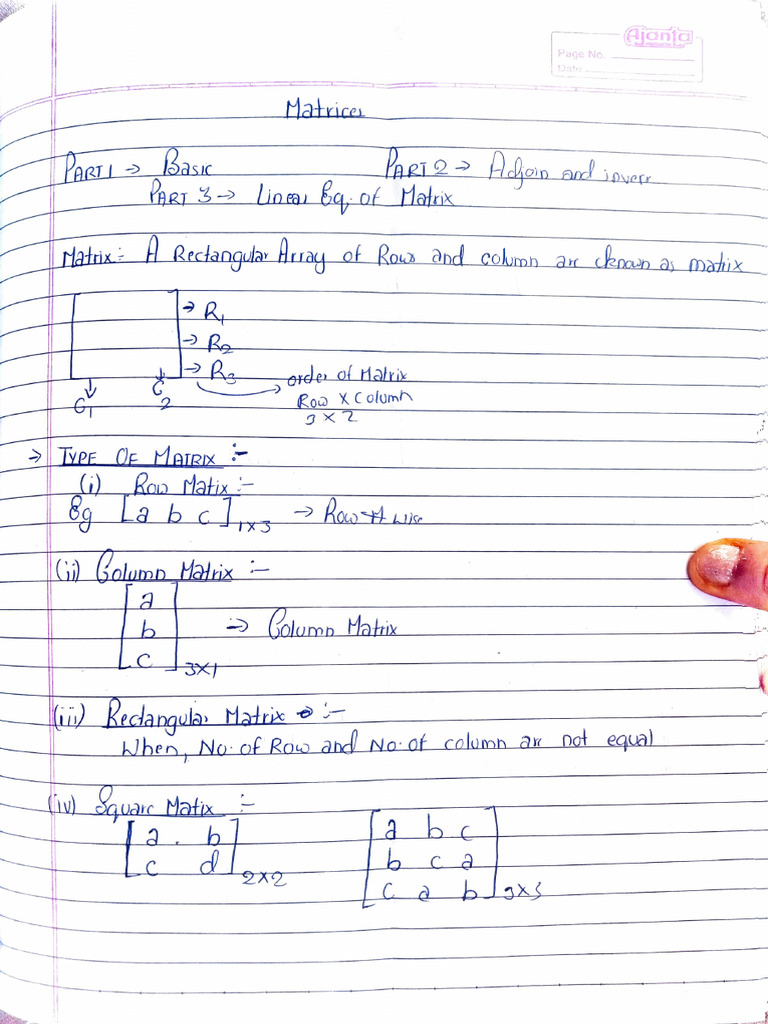 Ajanta
Page No.
Date
Matrices
PART 1 → BASIC PART 2 → Adjoin and inverr
PART 3 → Linear Eq. of Matrix
Matrix:- A Rectangular Array of Rows and column are cknown as matrix
→ R1
→ R2
→ R3
C1 C2
order of Matrix
Row X Column
3 X 2
→ TYPE OF MATRIX :-
(i) Row Matix :-
Eg [a b c]1x3 → Row wise
(ii) Column Matrix :-
a
b → Column Matrix
c 3x1
(iii) Rectangular Matrix :-
When, No. of Row and No. of column are not equal
(iv) Square Matix :-
a . b a b c
c d 2x2 b c a
c a b 3x3